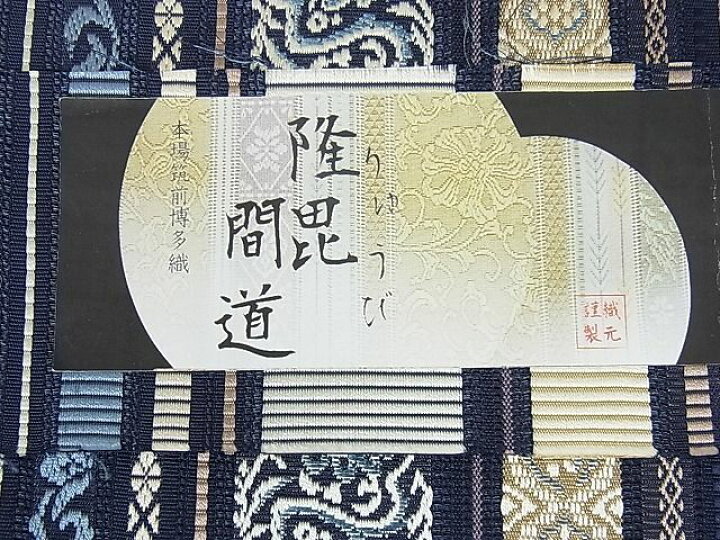 本場筑前博多織
隆毘
りゅうび
間道
織元
謹製